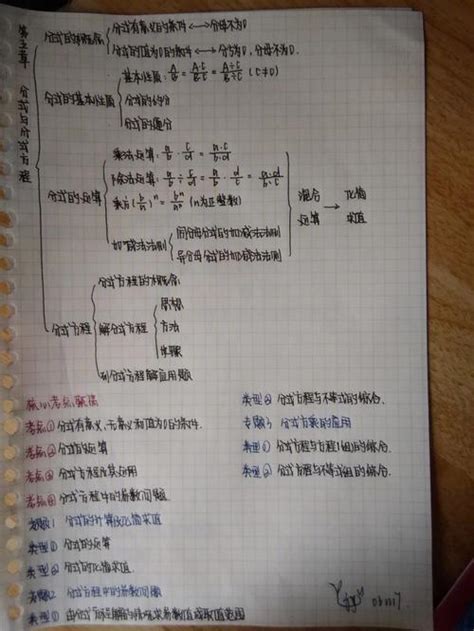 第五章 分式与分式方程
分式的概念
分式有意义的条件 ⟷ 分母不为0
分式的值为0的条件 ⟷ 分子为0，分母不为0.
分式的基本性质
基本性质: A/B = A·C/B·C = A÷C/B÷C (C≠0)
分式的约分
分式的通分
分式的运算
乘法运算: a/b · c/d = a·c/b·d
除法运算: a/b ÷ c/d = a/b · d/c = a·d/b·c
乘方 (n为正整数)
加减法法则
同分母分式的加减法法则
异分母分式的加减法法则
混合运算 → 化简求值
分式方程
分式方程的概念
解分式方程
思想
方法
步骤
列分式方程解应用题
核心考点
考点① 分式有意义、无意义和值为0的条件.
考点② 分式的运算
考点③ 分式方程及其应用
考点④ 分式方程中的参数问题
专题1 分式的计算及化简求值
类型① 分式的运算
类型② 分式的化简求值.
专题2 分式方程中的参数问题
类型① 由分式方程解的情况求参数值或取值范围
类型② 分式方程与不等式的综合.
专题3 分式方程的应用
类型① 分式方程与方程(组)的综合.
类型② 分式方程与不等式组的综合.